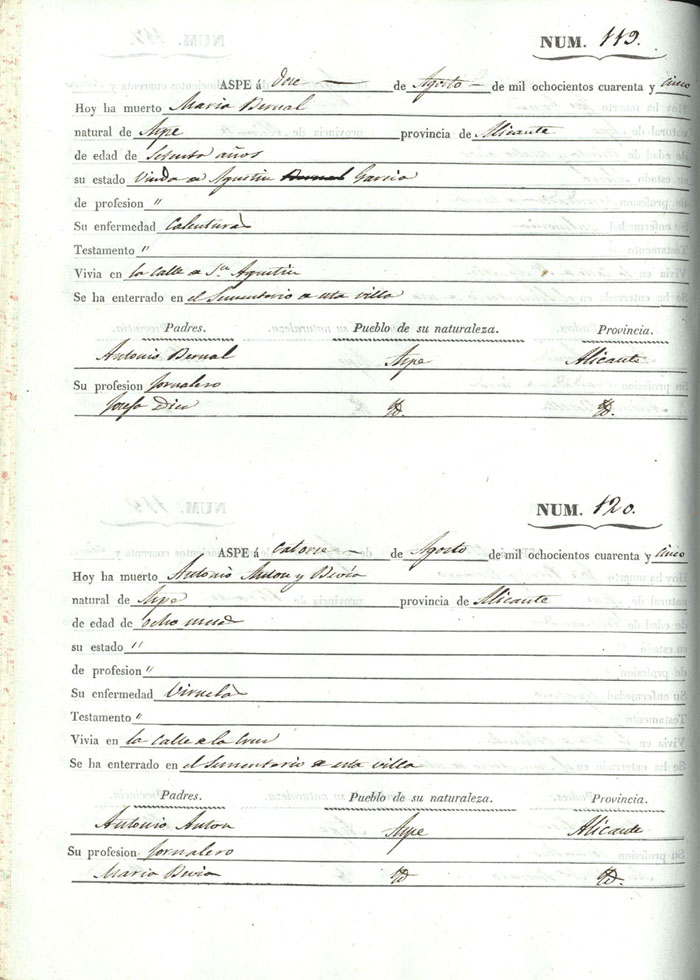 NUM. 119.
ASPE á Doce de Agosto de mil ochocientos cuarenta y cinco
Hoy ha muerto Maria Bernal
natural de Aspe provincia de Alicante
de edad de Setenta años
su estado Viuda de Agustin Bernal Garcia
de profesion "
Su enfermedad Calenturas
Testamento "
Vivia en la Calle de Sn Agustin
Se ha enterrado en el Sementerio de esta villa
Padres. Pueblo de su naturaleza. Provincia.
Antonio Bernal Aspe Alicante
Su profesion Jornalero
Josefa Dies Yd. Yd.
NUM. 120.
ASPE á Catorce de Agosto de mil ochocientos cuarenta y cinco
Hoy ha muerto Antonio Anton y Bevia
natural de Aspe provincia de Alicante
de edad de Ocho meses
su estado "
de profesion "
Su enfermedad Viruelas
Testamento "
Vivia en la Calle de la Cruz
Se ha enterrado en el Sementerio de esta villa
Padres. Pueblo de su naturaleza. Provincia.
Antonio Anton Aspe Alicante
Su profesion Jornalero
Maria Bevia Yd Yd.